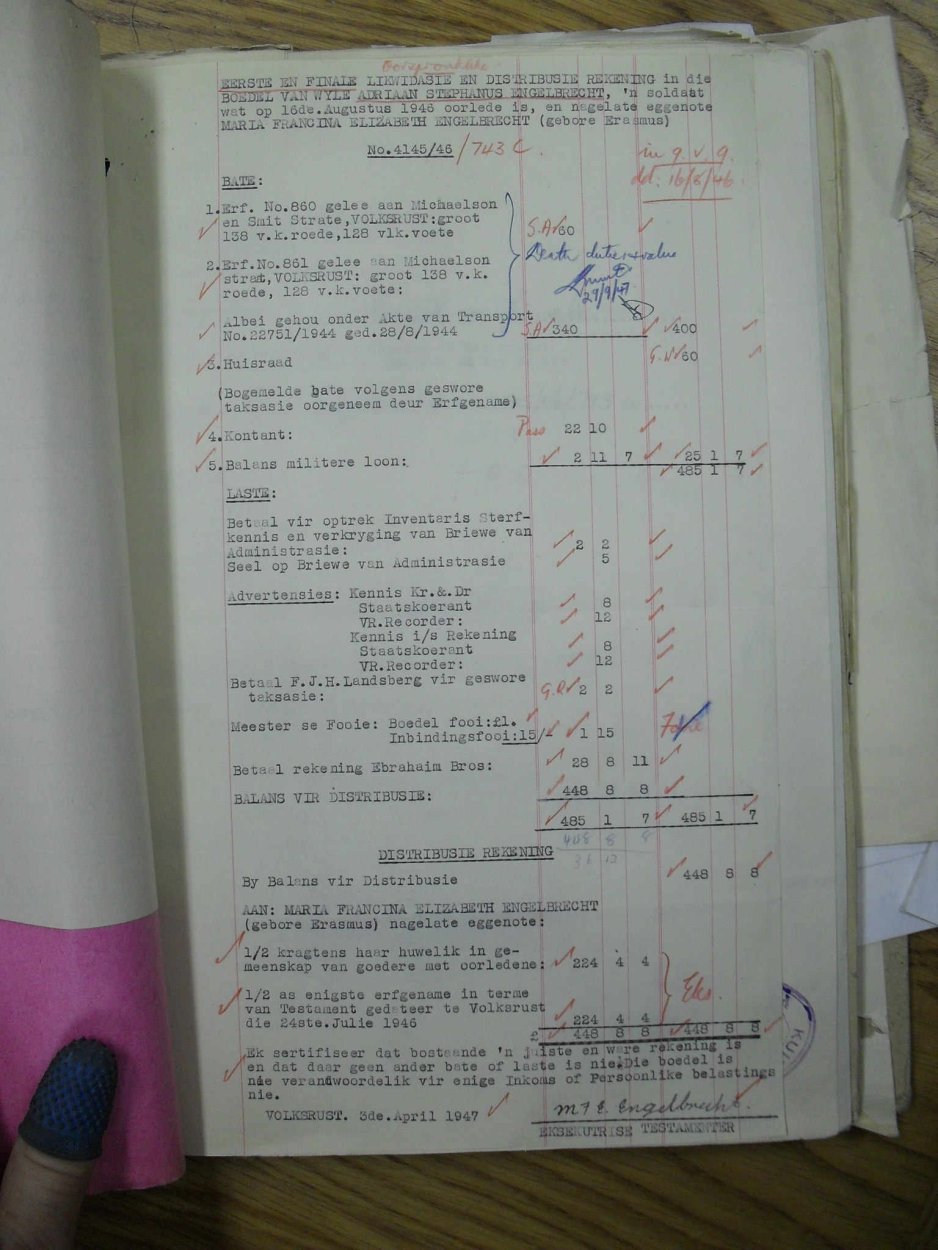 Oorspronklike
EERSTE EN FINALE LIKWIDASIE EN DISTRIBUSIE REKENING in die
BOEDEL VAN WYLE ADRIAAN STEPHANUS ENGELBRECHT, 'n soldaat
wat op 16de.Augustus 1946 oorlede is, en nagelate eggenote
MARIA FRANCINA ELIZABETH ENGELBRECHT (gebore Erasmus)
No.4145/46 /743 C.
in g.v.g.
dd: 16/8/46.
BATE:
1.Erf. No.860 gelee aan Michaelson
en Smit Strate,VOLKSRUST:groot S.A 60
138 v.k.roede,128 vlk.voete
Death duties value
2.Erf.No.861 gelee aan Michaelson
straat,VOLKSRUST: groot 138 v.k.
roede, 128 v.k.voete:
29/9/47
Albei gehou onder Akte van Transport
No.22751/1944 ged.28/8/1944 S.A 340 400
3.Huisraad G.W 60
(Bogemelde bate volgens geswore
taksasie oorgeneem deur Erfgename)
4.Kontant: Pass 22 10
5.Balans militere loon: 2 11 7 25 1 7
485 1 7
LASTE:
Betaal vir optrek Inventaris Sterf-
kennis en verkryging van Briewe van
Administrasie: 2 2
Seel op Briewe van Administrasie 5
Advertensies: Kennis Kr.&.Dr
Staatskoerant 8
VR.Recorder: 12
Kennis i/s Rekening
Staatskoerant 8
VR.Recorder: 12
Betaal F.J.H.Landsberg vir geswore
taksasie: 2 2
Meester se Fooie: Boedel fooi:£1.
Inbindingsfooi:15/- 1 15
Betaal rekening Ebrahaim Bros: 28 8 11
BALANS VIR DISTRIBUSIE: 448 8 8
485 1 7 485 1 7
448 8 8
36 12
DISTRIBUSIE REKENING
By Balans vir Distribusie 448 8 8
AAN: MARIA FRANCINA ELIZABETH ENGELBRECHT
(gebore Erasmus) nagelate eggenote:
1/2 kragtens haar huwelik in ge-
meenskap van goedere met oorledene: 224 4 4
Eks.
1/2 as enigste erfgename in terme
van Testament gedateer te Volksrust
die 24ste.Julie 1946 224 4 4
£ 448 8 8 448 8 8
Ek sertifiseer dat bostaande 'n juiste en ware rekening is
en dat daar geen ander bate of laste is nie.Die boedel is
nie verandwoordelik vir enige Inkoms of Persoonlike belastings
nie.
VOLKSRUST. 3de.April 1947 M F E Engelbrecht.
EKSEKUTRISE TESTAMENTER